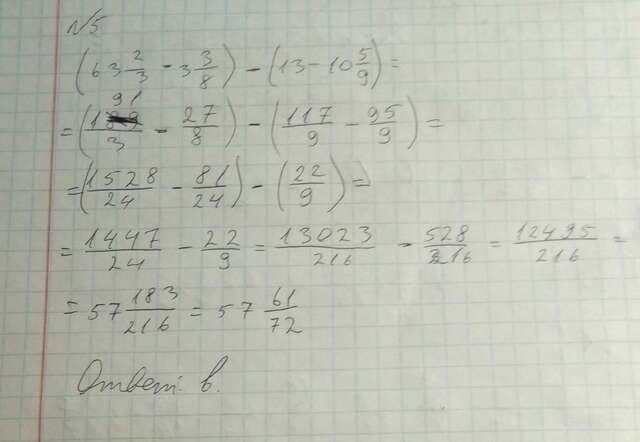 №5
(63 2/3 - 3 3/8) - (13 - 10 5/9) =
= (191/3 - 27/8) - (117/9 - 95/9) =
= (1528/24 - 81/24) - (22/9) =
= 1447/24 - 22/9 = 13023/216 - 528/216 = 12495/216 =
= 57 183/216 = 57 61/72
Ответ: в.